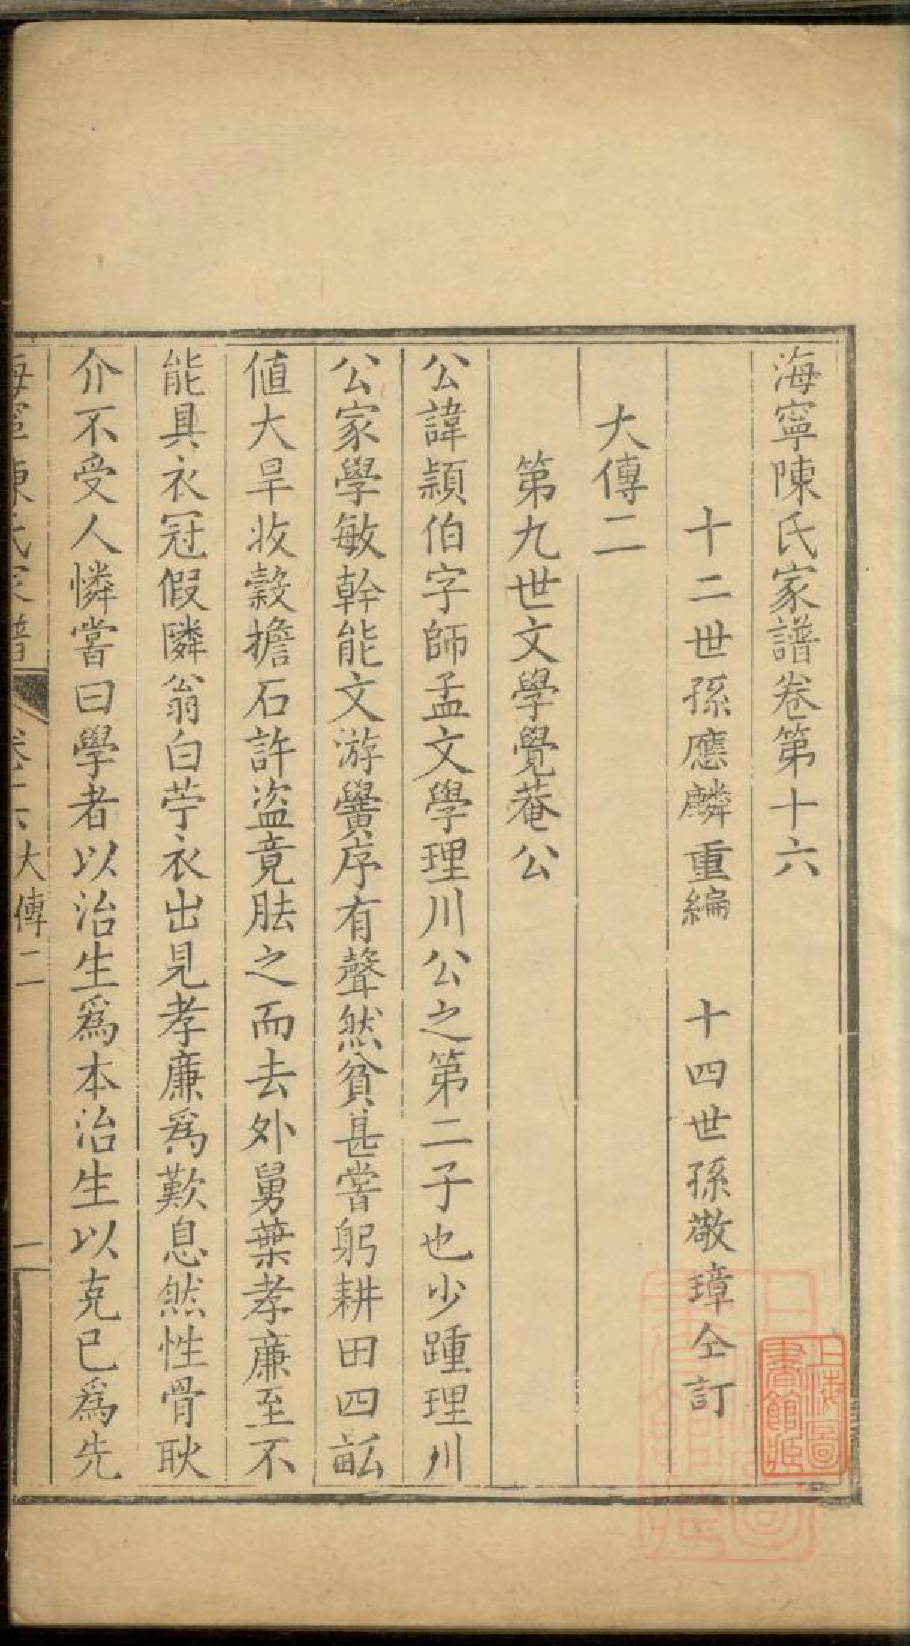 海寧陳氏家譜卷第十六
十二世孫應麟重編　十四世孫敬璋仝訂
大傳二
第九世文學覺菴公
公諱穎伯字師孟文學理川公之第二子也少踵理川
公家學敏幹能文游黌序有聲然貧甚嘗躬耕田四畝
値大旱收穀擔石許盜竟胠之而去外舅葉孝廉至不
能具衣冠假隣翁白苧衣出見孝廉爲歎息然性骨耿
介不受人憐嘗曰學者以治生爲本治生以克已爲先
海寧陳氏家譜 卷十六 大傳二 一
上海圖書館藏